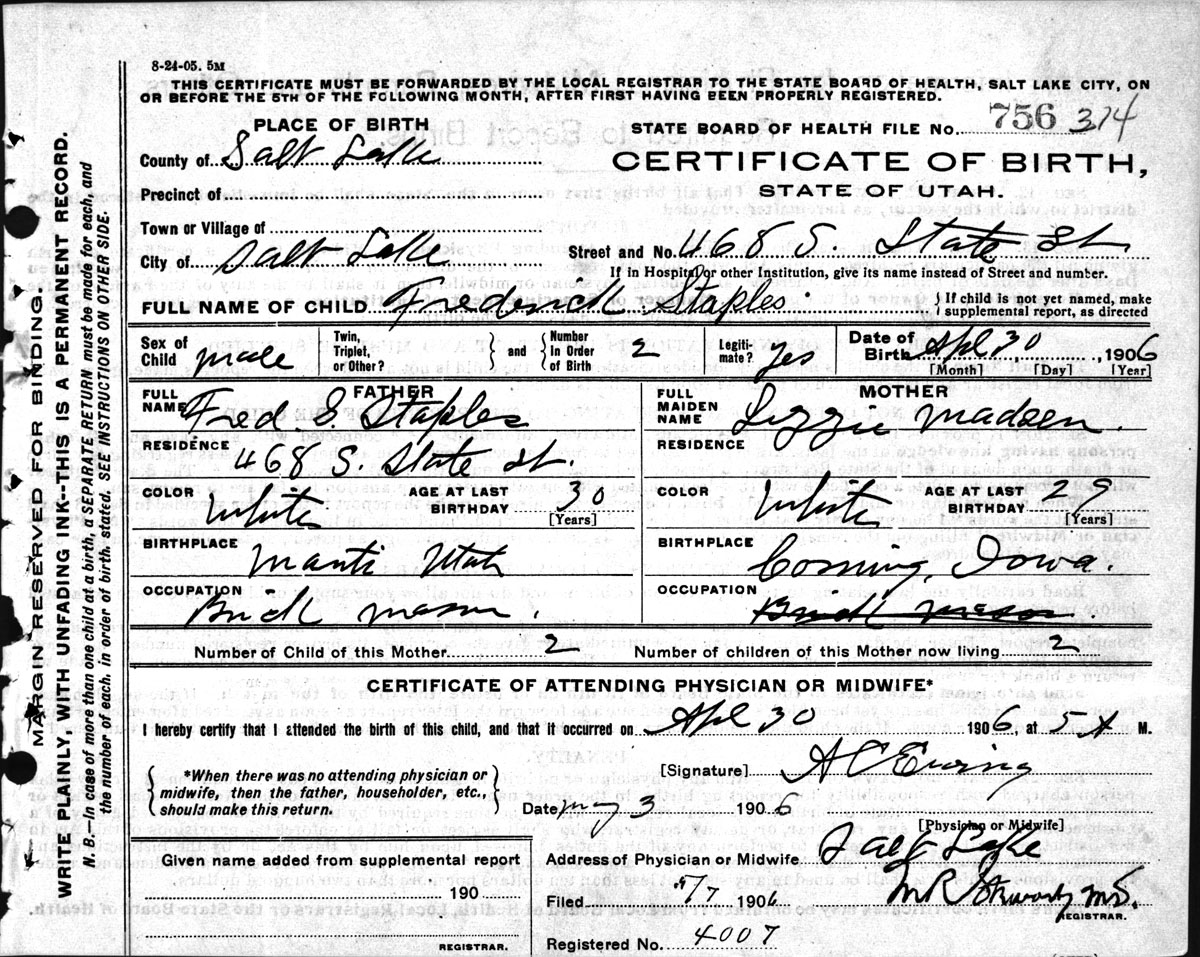 8-24-05. 5M
THIS CERTIFICATE MUST BE FORWARDED BY THE LOCAL REGISTRAR TO THE STATE BOARD OF HEALTH, SALT LAKE CITY, ON
OR BEFORE THE 5TH OF THE FOLLOWING MONTH, AFTER FIRST HAVING BEEN PROPERLY REGISTERED.
PLACE OF BIRTH
STATE BOARD OF HEALTH FILE No. 756 314
County of Salt Lake
CERTIFICATE OF BIRTH,
STATE OF UTAH.
Precinct of
Town or Village of
City of Salt Lake
Street and No. 468 S. State St.
If in Hospital or other Institution, give its name instead of Street and number.
FULL NAME OF CHILD Frederick Staples } If child is not yet named, make supplemental report, as directed
Sex of Child male Twin, Triplet, or Other? } and { Number In Order of Birth 2 Legitimate? yes Date of Birth Apl 30, 1906
[Month] [Day] [Year]
FATHER
FULL NAME Fred. S. Staples
RESIDENCE 468 S. State St.
COLOR White AGE AT LAST BIRTHDAY 30 [Years]
BIRTHPLACE Manti Utah
OCCUPATION Brick mason.
MOTHER
FULL MAIDEN NAME Lizzie Madsen.
RESIDENCE
COLOR White AGE AT LAST BIRTHDAY 29 [Years]
BIRTHPLACE Corning, Iowa.
OCCUPATION Brick Mason.
Number of Child of this Mother 2 Number of children of this Mother now living 2
CERTIFICATE OF ATTENDING PHYSICIAN OR MIDWIFE*
I hereby certify that I attended the birth of this child, and that it occurred on Apl 30 1906, at 5 A M.
{ *When there was no attending physician or midwife, then the father, householder, etc., should make this return. }
[Signature] A C Ewing
Date May 3 1906
[Physician or Midwife]
Given name added from supplemental report
190
REGISTRAR.
Address of Physician or Midwife Salt Lake
Filed 5/7 1906 M R Stewart, MD.
REGISTRAR.
Registered No. 4007
MARGIN RESERVED FOR BINDING
WRITE PLAINLY, WITH UNFADING INK--THIS IS A PERMANENT RECORD.
N. B.—In case of more than one child at a birth, a SEPARATE RETURN must be made for each, and
the number of each, in order of birth, stated. SEE INSTRUCTIONS ON OTHER SIDE.